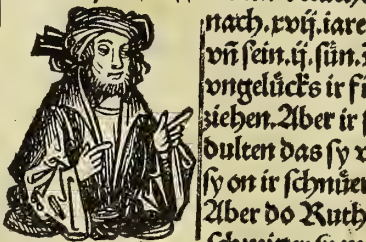 nach. xvij. iare
vñ sein. ij. sün.
vngelücks ir
ziehen. Aber ir
dulten das sy
sy on ir schnüer
Aber do Ruth